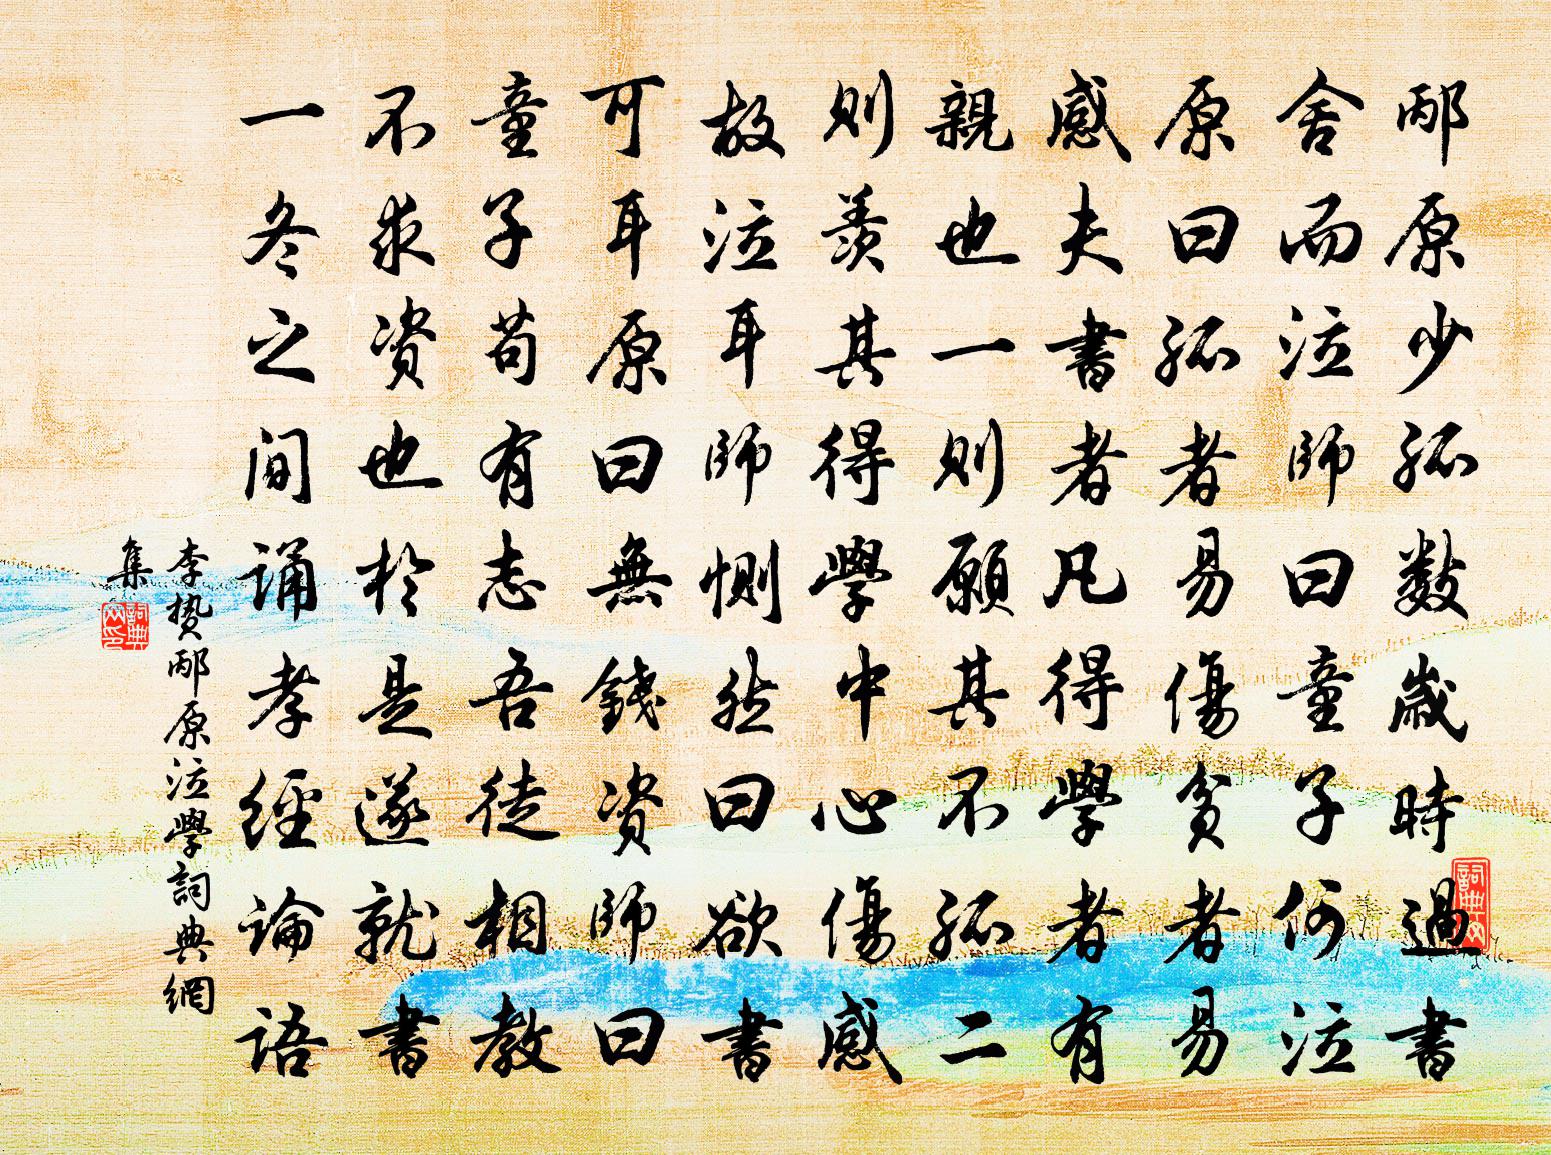 邴原少孤數歲時過書
舍而泣師曰童子何泣
原曰孤者易傷貧者易
感夫書者凡得學者有
親也一則願其不孤二
則羨其得學中心傷感
故泣耳師惻然曰欲書
可耳原曰無錢資師曰
童子苟有志吾徒相教
不求資也於是遂就書
一冬之間誦孝經論語
李贽邴原泣學詞典網
集
詞典
詞典